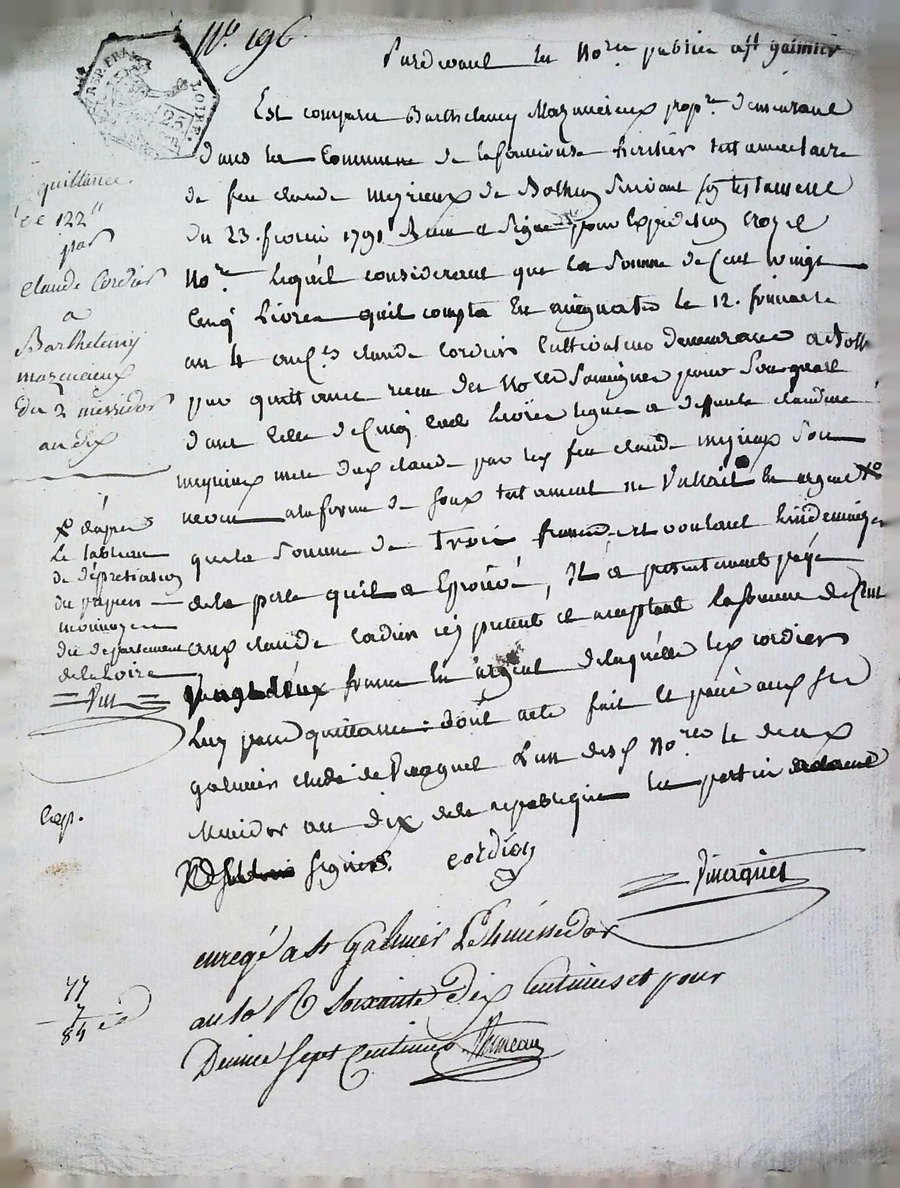 N.° 196
REP. FRA
LOIRE
25
Pardevant les No.res publics a St galmier
Est comparu Barthelemy Mazencieux prop.re demeurant
dans la Commune de lafouillouse heritier testamentaire
de feu claude meyrieux de Botheon suivant son testament
du 23. fevrier 1791 Reçu et Signé pour Expedition
No.re Lequel considerant que la somme de Cent vingt
Cinq Livres quil compta En assignats le 12. frimaire
an 4 claude Cordier Cultivateur demeurant a Both
par quittance recue des No.res soussignes pour
dans Celle de Cinq cent Livres leguée a deffunte claudine
meyrieux mere dud. claude par led. feu claude meyrieux son
neveu a la forme de sond. testament ne Valait En argent X.°
que la somme de Trois francs et voulant Lindemniser
de la perte quil a Eprouvé, Il a presentement payé
aud. claude cordier icy present et acceptant la somme de Cent
vingt deux francs En argent de laquelle led. cordier
Luy passe quittance : dont acte fait et passé aud. St
galmier Etude de Piraquet L'un desd. No.res le deux
Messidor an dix de la republique les parties
signées. cordier
Piraquet
enregé a St Galmier Le huit messidor
an 10 R Soixante Dix Centimes et pour
Dixieme Sept Centimes
quittance
de 122"
par
claude Cordier
a
Barthelemy
mazencieux
du 2 messidor
an dix
X dapres
Le tableau
de depretiation
du papier
monnoye
du departement
de la Loire
Exp.
77
7
84